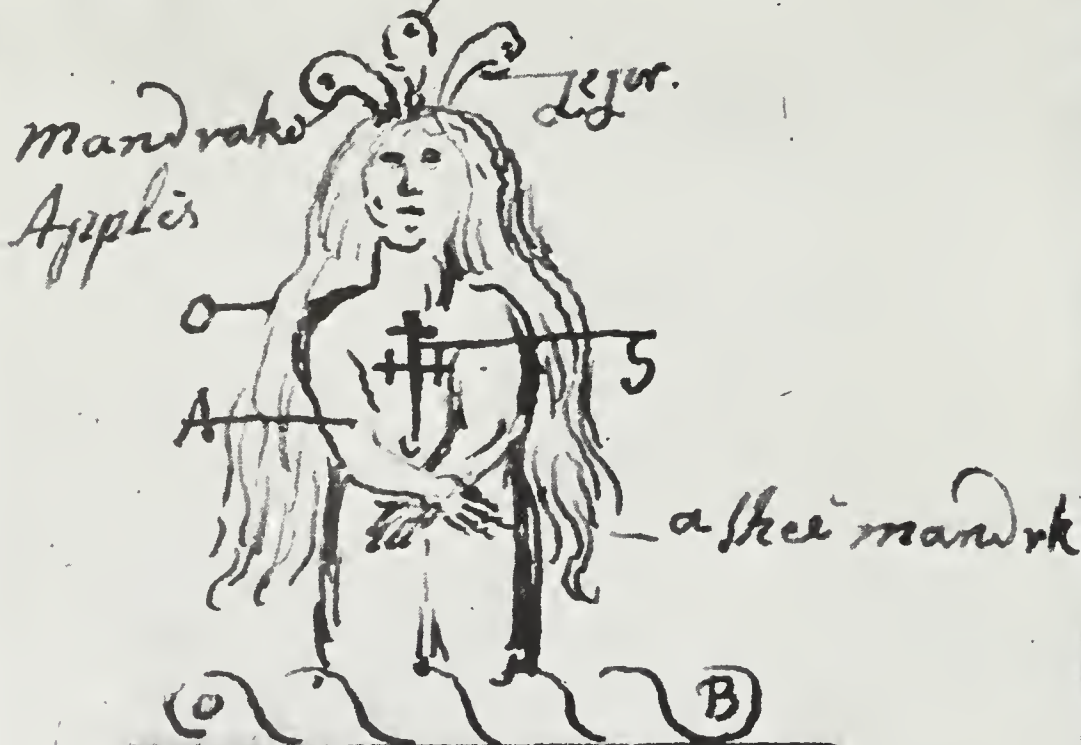 mandrake
Apples
O
A
a shee mandrk
O
B